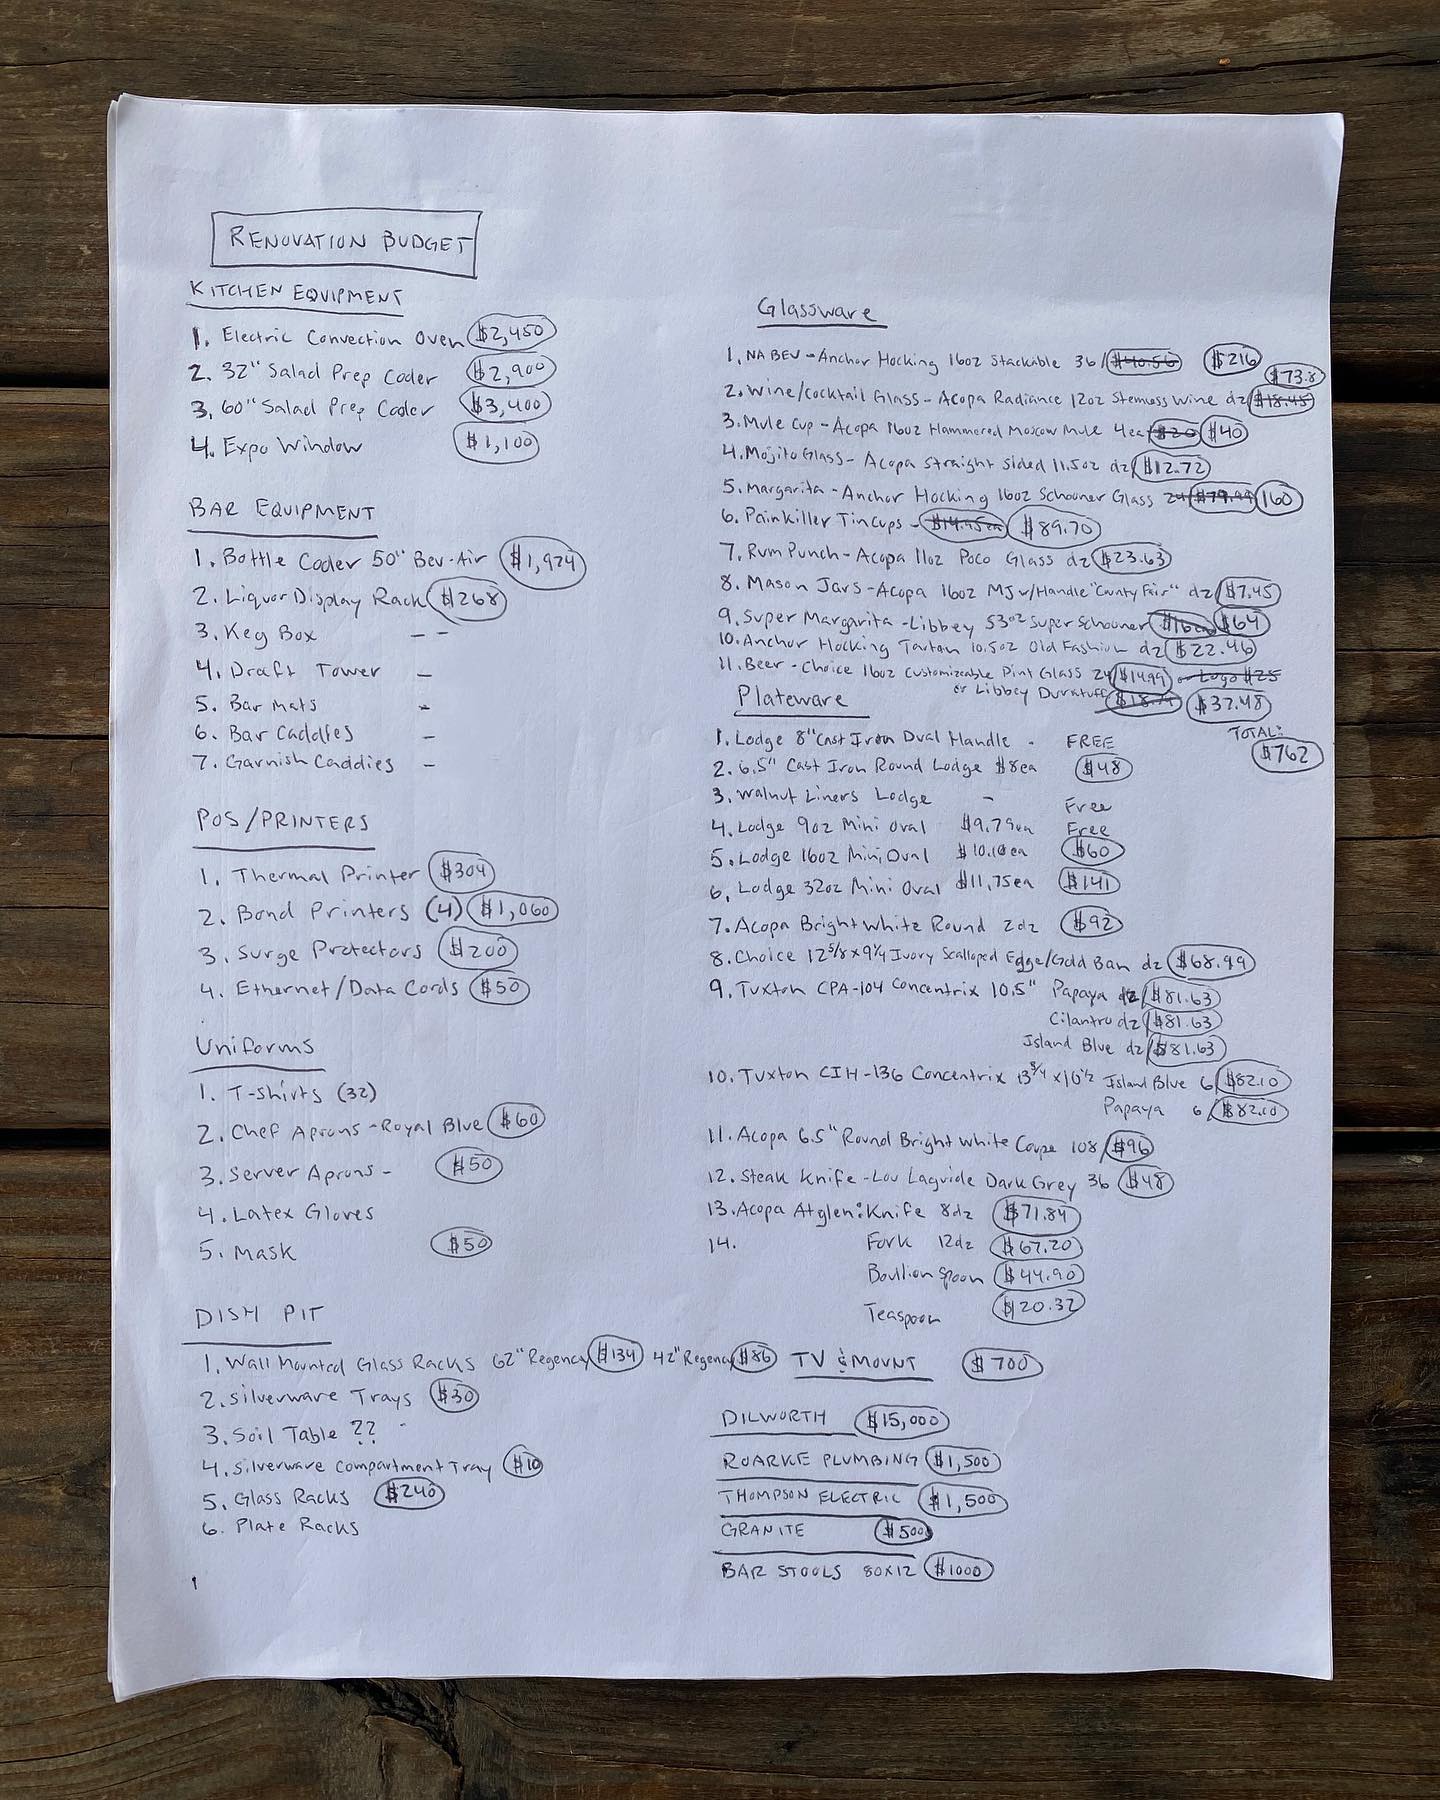 RENOVATION BUDGET
KITCHEN EQUIPMENT
1. Electric Convection Oven $2,450
2. 32" Salad Prep Cooler $2,900
3. 60" Salad Prep Cooler $3,400
4. Expo Window $1,100
BAR EQUIPMENT
1. Bottle Cooler 50" Bev-Air $1,924
2. Liquor Display Rack $268
3. Keg Box - -
4. Draft Tower -
5. Bar Mats -
6. Bar Caddies -
7. Garnish Caddies -
POS/PRINTERS
1. Thermal Printer $304
2. Bond Printers (4) $1,060
3. Surge Protectors $200
4. Ethernet/Data Cords $50
Uniforms
1. T-shirts (32)
2. Chef Aprons - Royal Blue $60
3. Server Aprons - $50
4. Latex Gloves
5. Mask $50
DISH PIT
1. Wall Mounted Glass Racks 62" Regency $134 42" Regency $86
2. Silverware Trays $30
3. Soil Table ??
4. Silverware Compartment Tray $10
5. Glass Racks $240
6. Plate Racks
Glassware
1. NA BEV - Anchor Hocking 16oz Stackable 36/ $40.56 $216
2. Wine/Cocktail Glass - Acopa Radiance 12oz Stemless Wine dz $18.45 $73.8
3. Mule Cup - Acopa 16oz Hammered Moscow Mule 4ea $20 $40
4. Mojito Glass - Acopa Straight Sided 11.5oz dz/ $12.72
5. Margarita - Anchor Hocking 16oz Schooner Glass 24 $79.99 160
6. Painkiller Tin Cups - $14.95ea $89.70
7. Rum Punch - Acopa 11oz Poco Glass dz $23.63
8. Mason Jars - Acopa 16oz MJ w/Handle "County Fair" dz/ $7.45
9. Super Margarita - Libbey 53oz Super Schooner $16ea $64
10. Anchor Hocking Tartan 10.5oz Old Fashion dz $22.46
11. Beer - Choice 16oz Customizeable Pint Glass 24/ $14.99 or Logo $25
or Libbey Duratuff $37.48
TOTAL:
$762
Plateware
1. Lodge 8" Cast Iron Dual Handle - FREE
2. 6.5" Cast Iron Round Lodge $8ea $48
3. Walnut Liners Lodge - Free
4. Lodge 9oz Mini Oval $9.79ea Free
5. Lodge 16oz Mini Oval $10.10ea $60
6. Lodge 32oz Mini Oval $11.75ea $141
7. Acopa Bright White Round 2dz $92
8. Choice 12 5/8 x 9 1/4 Ivory Scalloped Edge/Gold Ban dz $68.99
9. Tuxton CPA-104 Concentrix 10.5" Papaya dz/ $81.63
Cilantro dz/ $81.63
Island Blue dz/ $81.63
10. Tuxton CIH-136 Concentrix 13 3/4 x 10 1/2 Island Blue 6/ $82.10
Papaya 6/ $82.10
11. Acopa 6.5" Round Bright White Coupe 108/ $96
12. Steak Knife - Lou Laguiole Dark Grey 36 $48
13. Acopa Atglen: Knife 8dz $71.84
14. Fork 12dz $67.20
Boullion Spoon $44.90
Teaspoon $20.32
TV & MOUNT $700
DILWORTH $15,000
ROARKE PLUMBING $1,500
THOMPSON ELECTRIC $1,500
GRANITE $500
BAR STOOLS 80X12 $1000